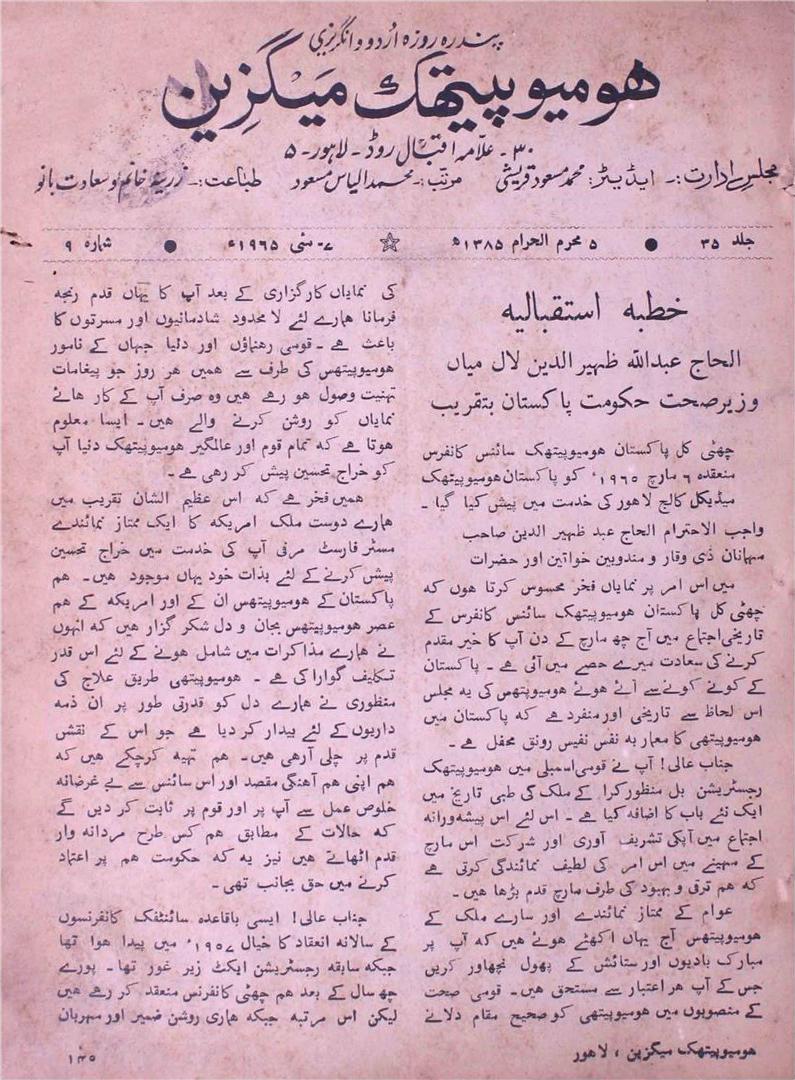 پندرہ روزہ اُردو و انگریزی
ھومیوپیتھک میگزین
۳۰۔ علّامہ اقبال روڈ۔ لاہور۔ ۵
مجلسِ ادارت:۔ ایڈیٹر: محمد مسعود قریشی مرتب:۔ محمد الیاس مسعود طباعت:۔ زرینہ خانم و سعادت بانو
جلد ۳۵ ● ۵ محرم الحرام ۱۳۸۵ھ ☆ ۷۔ مئی ۱۹۶۵ء ● شمارہ ۹
خطبہ استقبالیہ
الحاج عبداللہ ظہیر الدین لال میاں
وزیر صحت حکومت پاکستان بتقریب
چھٹی کل پاکستان ھومیوپیتھک سائنس کانفرس
منعقدہ ۶ مارچ ۱۹۶۵ء کو پاکستان ھومیوپیتھک
میڈیکل کالج لاھور کی خدمت میں پیش کیا گیا۔
واجب الاحترام الحاج عبد ظہیر الدین صاحب
مہانان ذی وقار و مندوبین خواتین اور حضرات
میں اس امر پر نمایاں فخر محسوس کرتا ھوں کہ
چھٹی کل پاکستان ھومیوپیتھک سائنس کانفرس کے
تاریخی اجتماع میں آج چھ مارچ کے دن آپ کا خیر مقدم
کرنے کی سعادت میرے حصے میں آئی ھے۔ پاکستان
کے کونے کونے سے آئے ھوئے ھومیوپتھس کی یہ مجلس
اس لحاظ سے تاریخی اور منفرد ھے کہ پاکستان میں
ھومیوپیتھی کا معمار بہ نفس نفیس رونق محفل ھے۔
جناب عالی! آپ نے قومی اسمبلی میں ھومیوپیتھک
رجسٹریشن بل منظور کرا کے ملک کی طبی تاریخ میں
ایک نئے باب کا اضافہ کیا ھے۔ اس لئے اس پیشہ ورانہ
اجتماع میں آپکی تشریف آوری اور شرکت اس مارچ
کے مہینے میں اس امر کی لطیف نمائندگی کرتی ھے
کہ ھم ترقی و بہبود کی طرف مارچ قدم بڑھا ھیں۔
عوام کے ممتاز نمائندے اور سارے ملک کے
ھومیوپیتھس آج یہاں اکھٹے ھوئے ھیں کہ آپ پر
مبارک بادیوں اور ستائش کے پھول نچھاور کریں
جس کے آپ ھر اعتبار سے مستحق ھیں۔ قومی صحت
کے منصوبوں میں ھومیوپیتھی کو صحیح مقام دلانے
کی نمایاں کارگزاری کے بعد آپ کا یہاں قدم رنجہ
فرمانا ھمارے لئے لا محدود شادمانیوں اور مسرتوں کا
باعث ھے۔ قومی رھنماؤں اور دنیا جہاں کے نامور
ھومیوپیتھس کی طرف سے ھمیں ھر روز جو پیغامات
تہنیت وصول ھو رھے ھیں وہ صرف آپ کے کار ھائے
نمایاں کو روشن کرنے والے ھیں۔ ایسا معلوم
ھوتا ھے کہ تمام قوم اور عالمگیر ھومیوپیتھک دنیا آپ
کو خراج تحسین پیش کر رھی ھے۔
ھمیں فخر ھے کہ اس عظیم الشان تقریب میں
ھمارے دوست ملک امریکہ کا ایک ممتاز نمائندے
مسٹر فارسٹ مرفی آپ کی خدمت میں خراج تحسین
پیش کرنے کے لئے بذات خود یہاں موجود ھیں۔ ھم
پاکستان کے ھومیوپیتھس ان کے اور امریکہ کے ھم
عصر ھومیوپیتھس بجان و دل شکر گزار ھیں کہ انہوں
نے ھمارے مذاکرات میں شامل ھونے کے لئے اس قدر
تکلیف گوارا کی ھے۔ ھومیوپیتھی طریق علاج کی
منظوری نے ھمارے دل کو قدرتی طور پر ان ذمہ
داریوں کے لئے بیدار کر دیا ھے جو اس کے نقش
قدم پر چلی آرھی ھیں۔ ھم تہیہ کرچکے ھیں کہ
ھم اپنی ھم آھنگی مقصد اور اس سائنس سے بے غرضانہ
خلوص عمل سے آپ پر اور قوم پر ثابت کر دیں گے
کہ حالات کے مطابق ھم کس طرح مردانہ وار
قدم اٹھاتے ھیں نیز یہ کہ حکومت ھم پر اعتماد
کرنے میں حق بجانب تھی۔
جناب عالی! ایسی باقاعدہ سائنٹفک کانفرنسوں
کے سالانہ انعقاد کا خیال ۱۹۵۷ء میں پیدا ھوا تھا
جبکہ سابقہ رجسٹریشن ایکٹ زیر غور تھا۔ پورے
چھ سال کے بعد ھم چھٹی کانفرنس منعقد کر رھے ھیں
لیکن اس مرتبہ جبکہ ھماری روشن ضمیر اور مہربان
ھومیوپیتھک میگزین، لاھور
۱۴۵